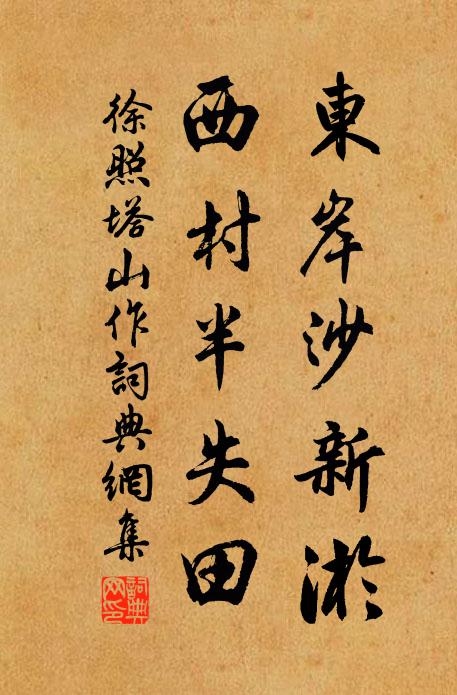 東岸沙新淤
西村半失田
徐照塔山作詞典網集
詞典網印